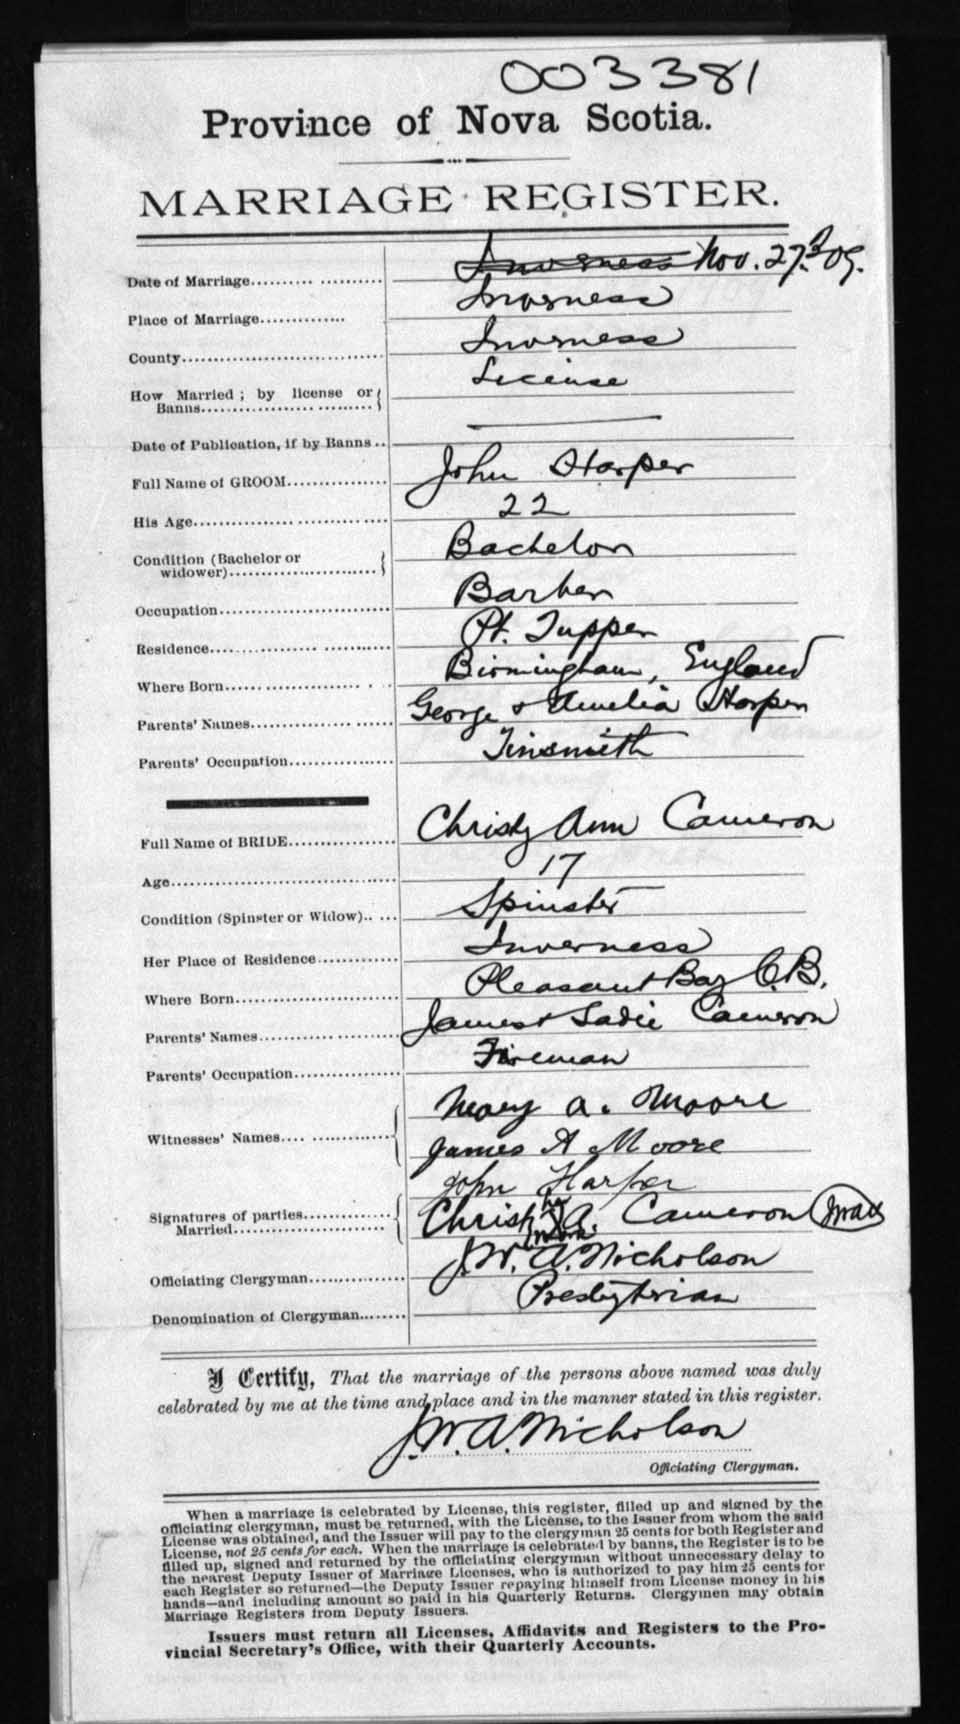 003381
Province of Nova Scotia.
MARRIAGE REGISTER.
Date of Marriage.......... ........... Inverness Nov. 27.d 09.
Place of Marriage.............. Inverness
County.................................. Inverness
How Married ; by license or License
Banns.................. ...........
Date of Publication, if by Banns .. ———
Full Name of GROOM................. John Harper
His Age.................. ............... 22
Condition (Bachelor or Bachelor
widower)..........................
Occupation............................. Barber
Residence.................. ........... Pt. Tupper
Where Born........................ . . Birmingham, England
Parents' Names.................. ...... George & Amelia Harper
Parents' Occupation.................. Tinsmith
Full Name of BRIDE.................. Christy Ann Cameron
Age....................................... 17
Condition (Spinster or Widow).. ... Spinster
Her Place of Residence.............. Inverness
Where Born............................ Pleasant Bay C.B.
Parents' Names.............. ......... James & Sadie Cameron
Parents' Occupation................... Fireman
Mary A. Moore
Witnesses' Names.... ............... James A Moore
John Harper
Signatures of parties............... Christy her X mark A. Cameron
Married..........................
Officiating Clergyman................ J.W. A. Nicholson
Denomination of Clergyman........ Presbyterian
I Certify, That the marriage of the persons above named was duly
celebrated by me at the time and place and in the manner stated in this register.
J.W.A. Nicholson
Officiating Clergyman.
When a marriage is celebrated by License, this register, filled up and signed by the
officiating clergyman, must be returned, with the License, to the Issuer from whom the said
License was obtained, and the Issuer will pay to the clergyman 25 cents for both Register and
License, not 25 cents for each. When the marriage is celebrated by banns, the Register is to be
filled up, signed and returned by the officiating clergyman without unnecessary delay to
the nearest Deputy Issuer of Marriage Licenses, who is authorized to pay him 25 cents for
each Register so returned—the Deputy Issuer repaying himself from License money in his
hands—and including amount so paid in his Quarterly Returns. Clergymen may obtain
Marriage Registers from Deputy Issuers.
Issuers must return all Licenses, Affidavits and Registers to the Pro-
vincial Secretary's Office, with their Quarterly Accounts.